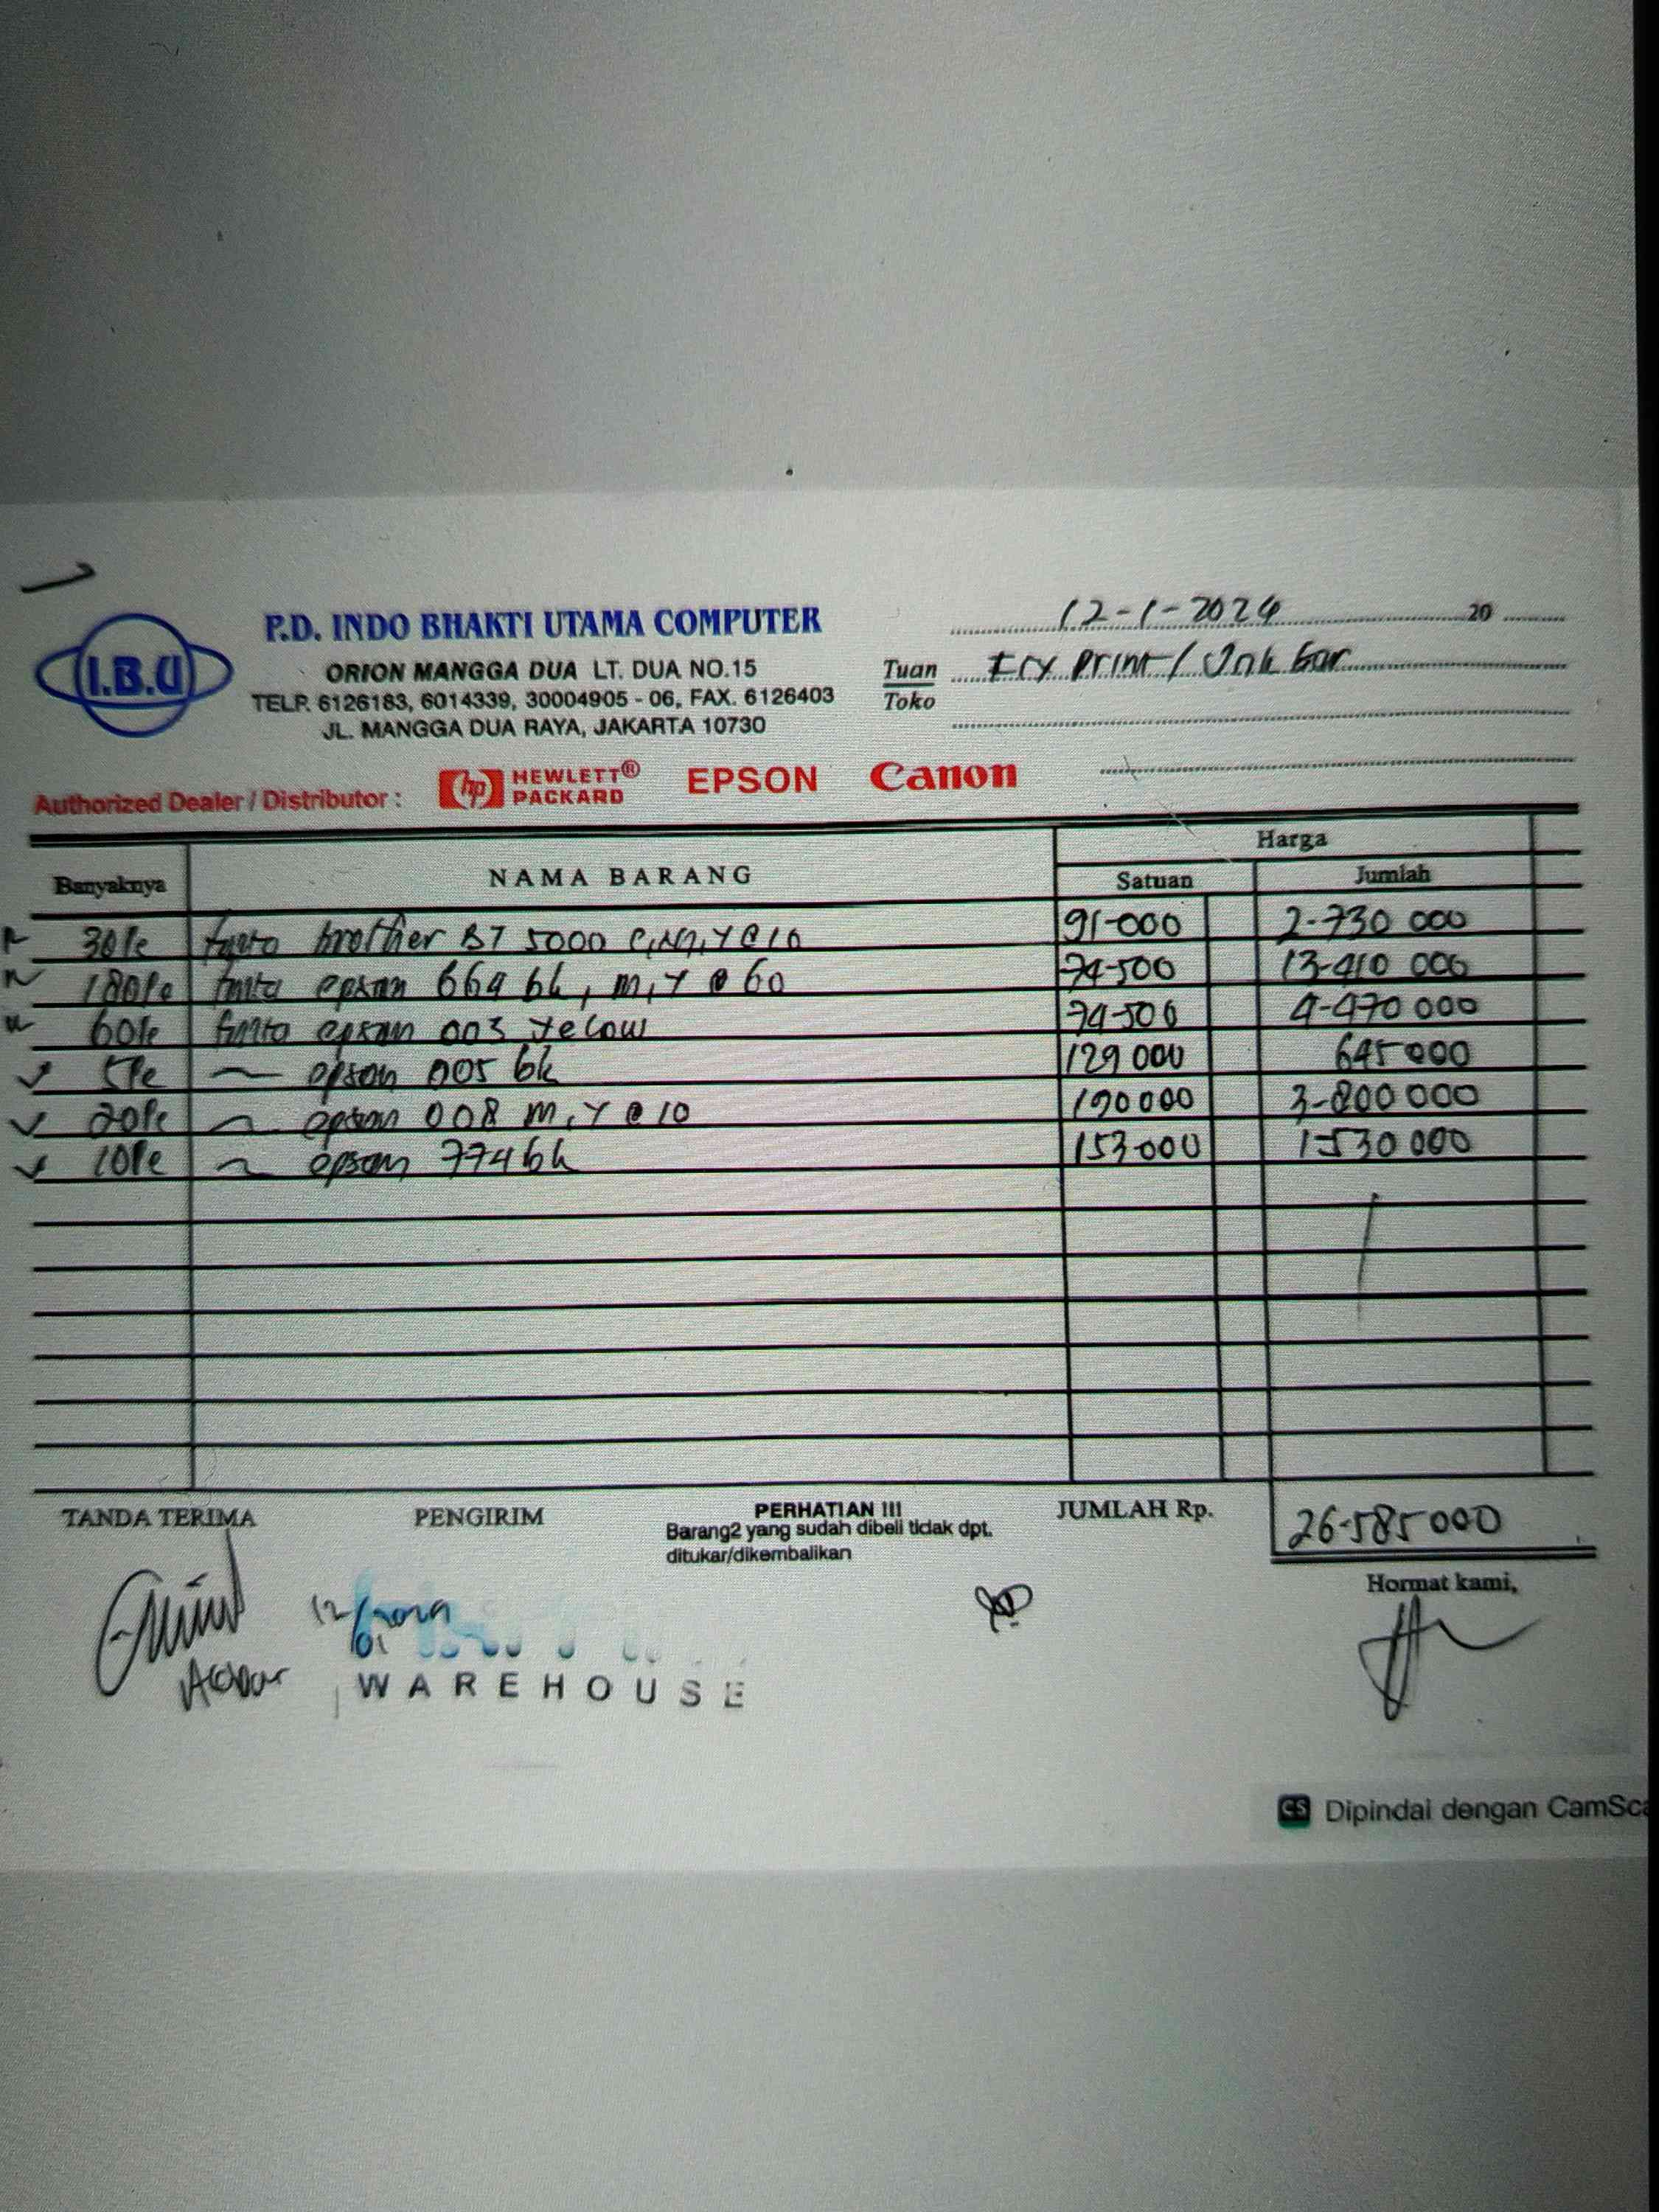 I.B.U
P.D. INDO BHAKTI UTAMA COMPUTER
ORION MANGGA DUA LT. DUA NO.15
TELP. 6126183, 6014339, 30004905 - 06, FAX. 6126403
JL. MANGGA DUA RAYA, JAKARTA 10730
12-1-2024 20
Tuan Print / Ink bar
Toko
Authorized Dealer / Distributor : hp HEWLETT® PACKARD EPSON Canon
Banyaknya NAMA BARANG Harga
Satuan Jumlah
30Pc tinta brother BT 5000 C,M,Y @10 91-000 2-730 000
180Pc tinta epson 664 bk, m,Y @ 60 74-500 13-410 000
60Pc tinta epson 003 yelow 74-500 4-470 000
5Pc epson 005 bk 129 000 645 000
20Pc epson 008 m,Y @ 10 190 000 3-800 000
10Pc epson 774 bk 153-000 1-530 000
TANDA TERIMA PENGIRIM PERHATIAN !!! JUMLAH Rp. 26-585 000
Barang2 yang sudah dibeli tidak dpt.
ditukar/dikembalikan
Hormat kami,
WAREHOUSE
CS Dipindai dengan CamSca